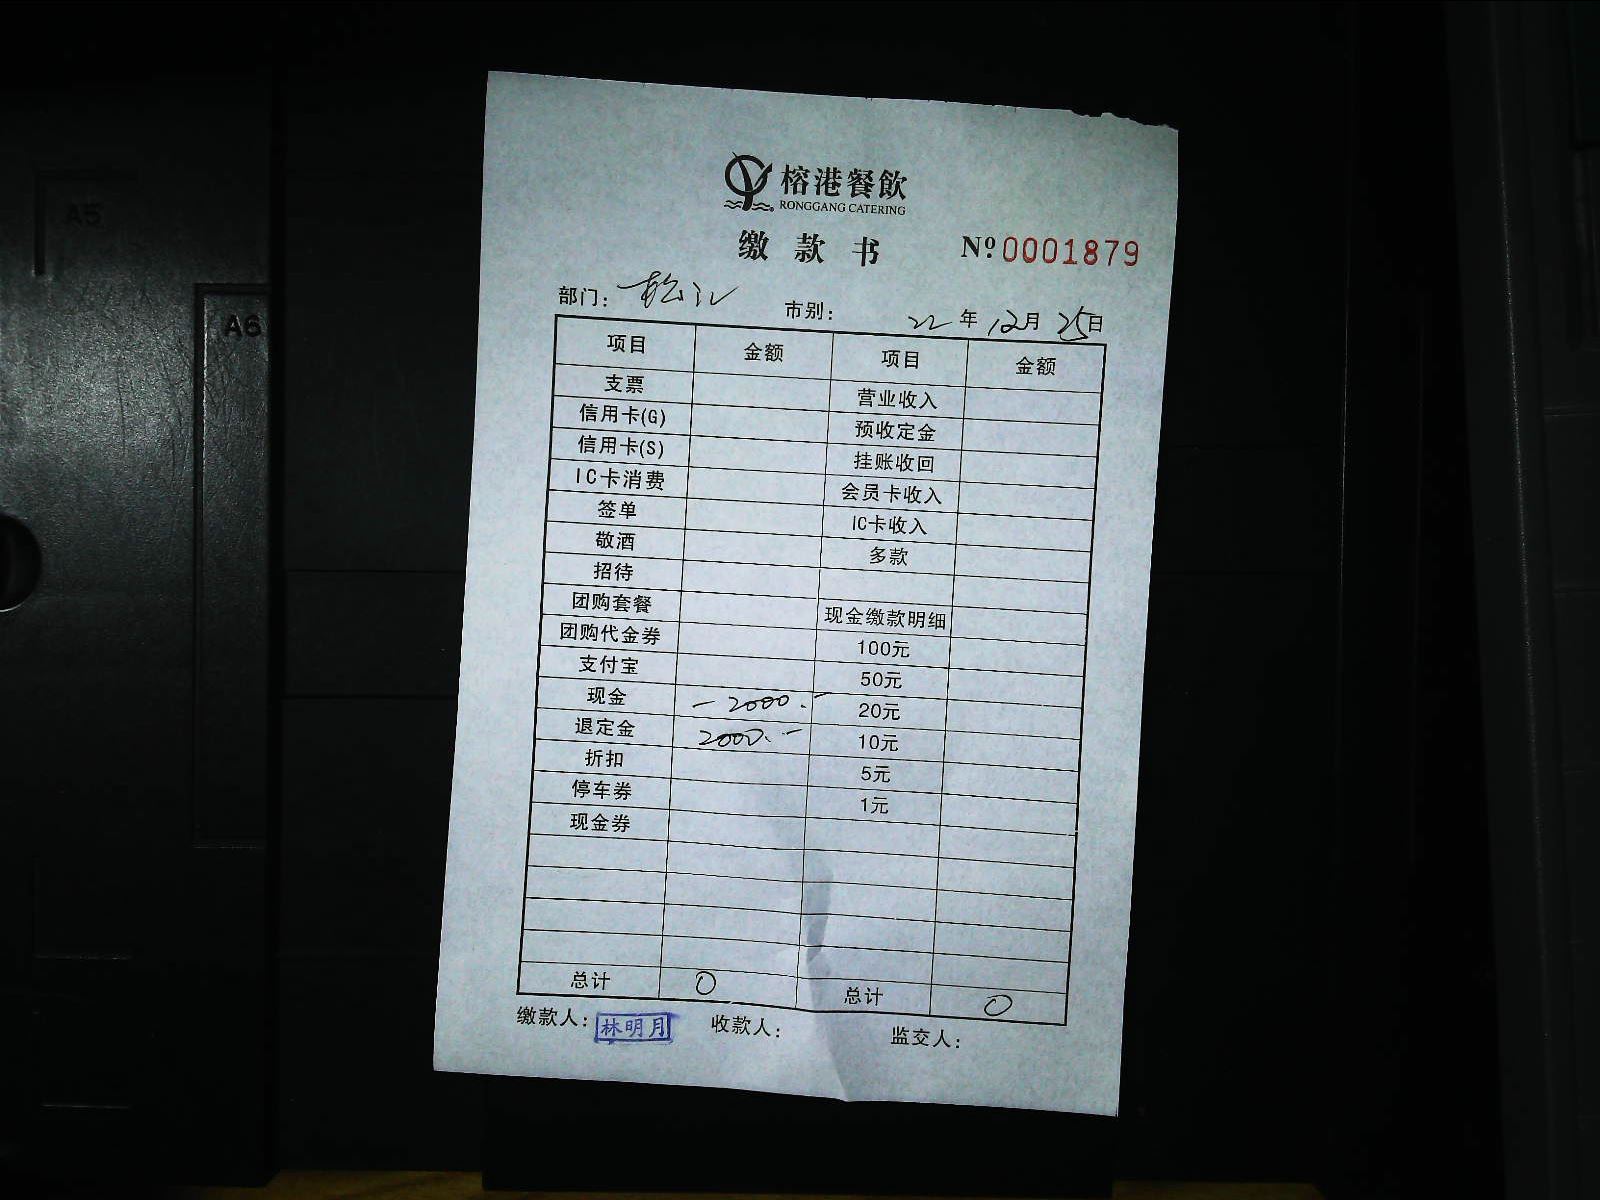 榕港餐飲
RONGGANG CATERING
缴款书 Nº 0001879
部门: 松江 市别: 22年12月25日
项目 金额 项目 金额
支票 营业收入
信用卡(G) 预收定金
信用卡(S) 挂账收回
IC卡消费 会员卡收入
签单 IC卡收入
敬酒 多款
招待
团购套餐 现金缴款明细
团购代金券 100元
支付宝 50元
现金 -2000.- 20元
退定金 2000.- 10元
折扣 5元
停车券 1元
现金券
总计 0 总计 0
缴款人: 林明月 收款人: 监交人:
A5
A6